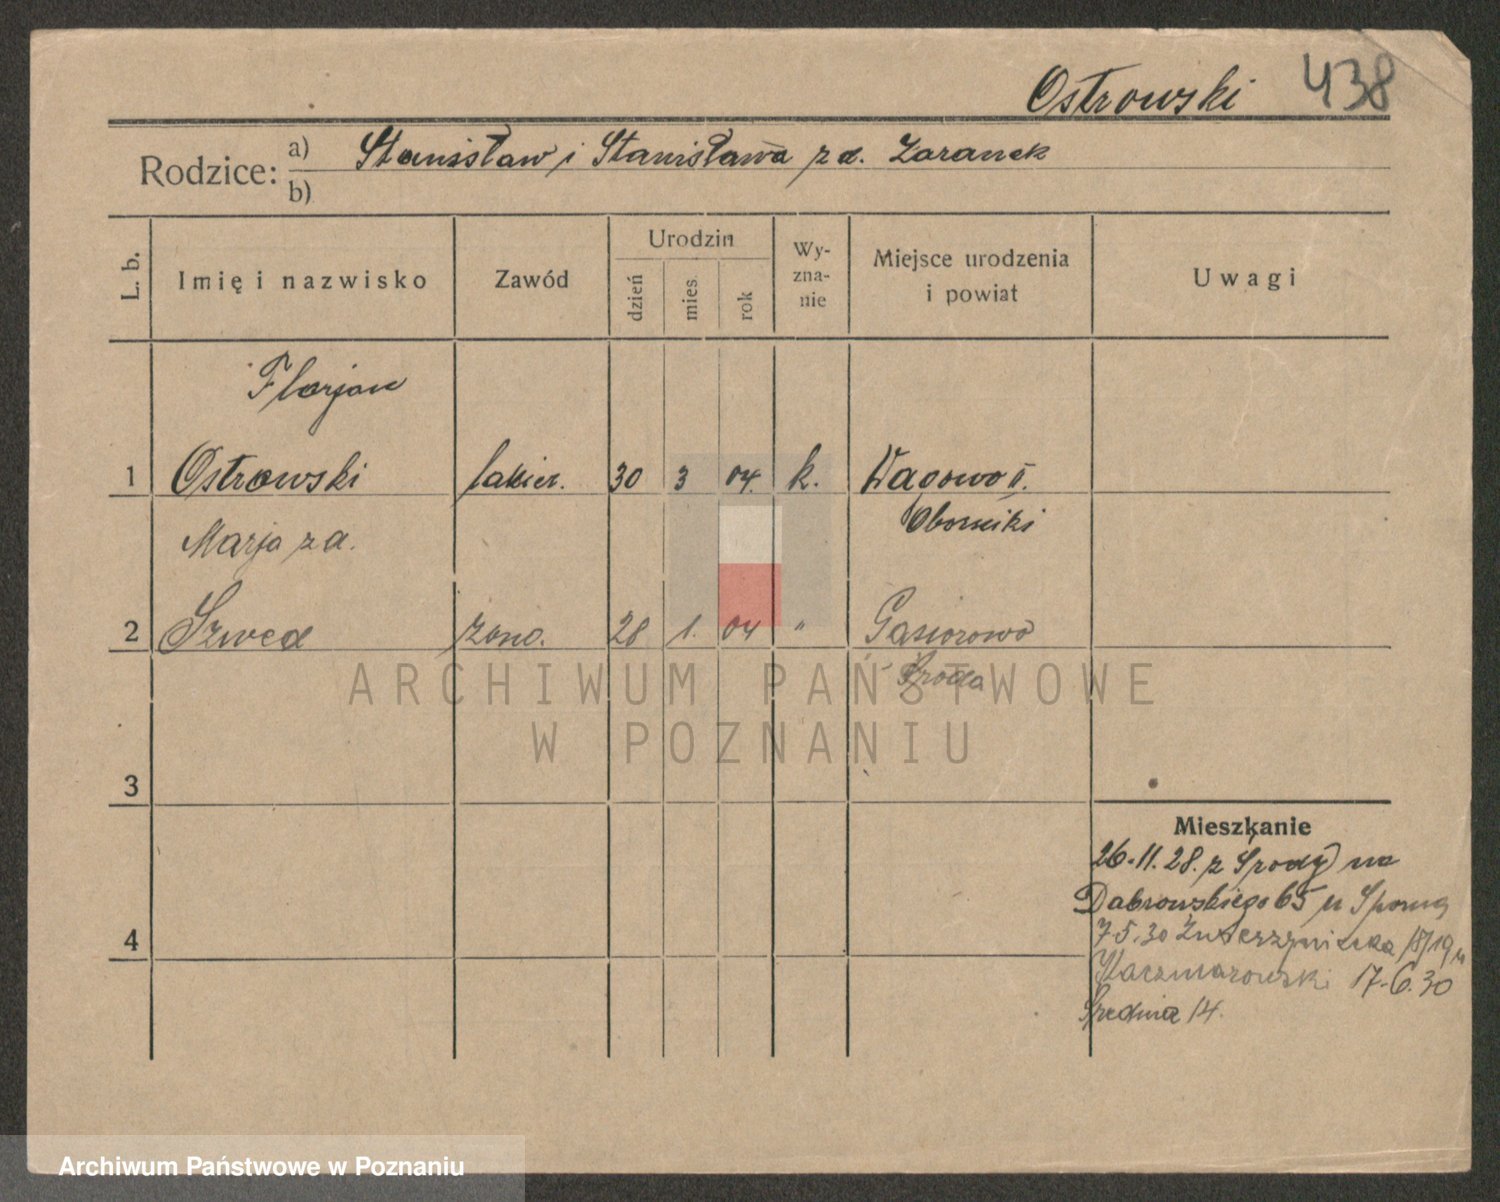 Ostrowski 438
Rodzice: a) Stanisław i Stanisława z d. Zaranek
b)
L. b.
Imię i nazwisko
Zawód
Urodzin
dzień
mies.
rok
Wy-
zna-
nie
Miejsce urodzenia
i powiat
Uwagi
Florjan
1 Ostrowski lakier. 30 3 04. k. Wagowo
Oborniki
Marja z d.
2 Szwed żona. 28 1. 04 " Gąsiorowo
Środa
ARCHIWUM PAŃSTWOWE
W POZNANIU
3
Mieszkanie
26.11.28. z Środy na
Dąbrowskiego 65 u
4
7.5.30 Zwierzyniecka 18/19 u
Kaczmarowski 17.6.30
Średnia 14.
Archiwum Państwowe w Poznaniu